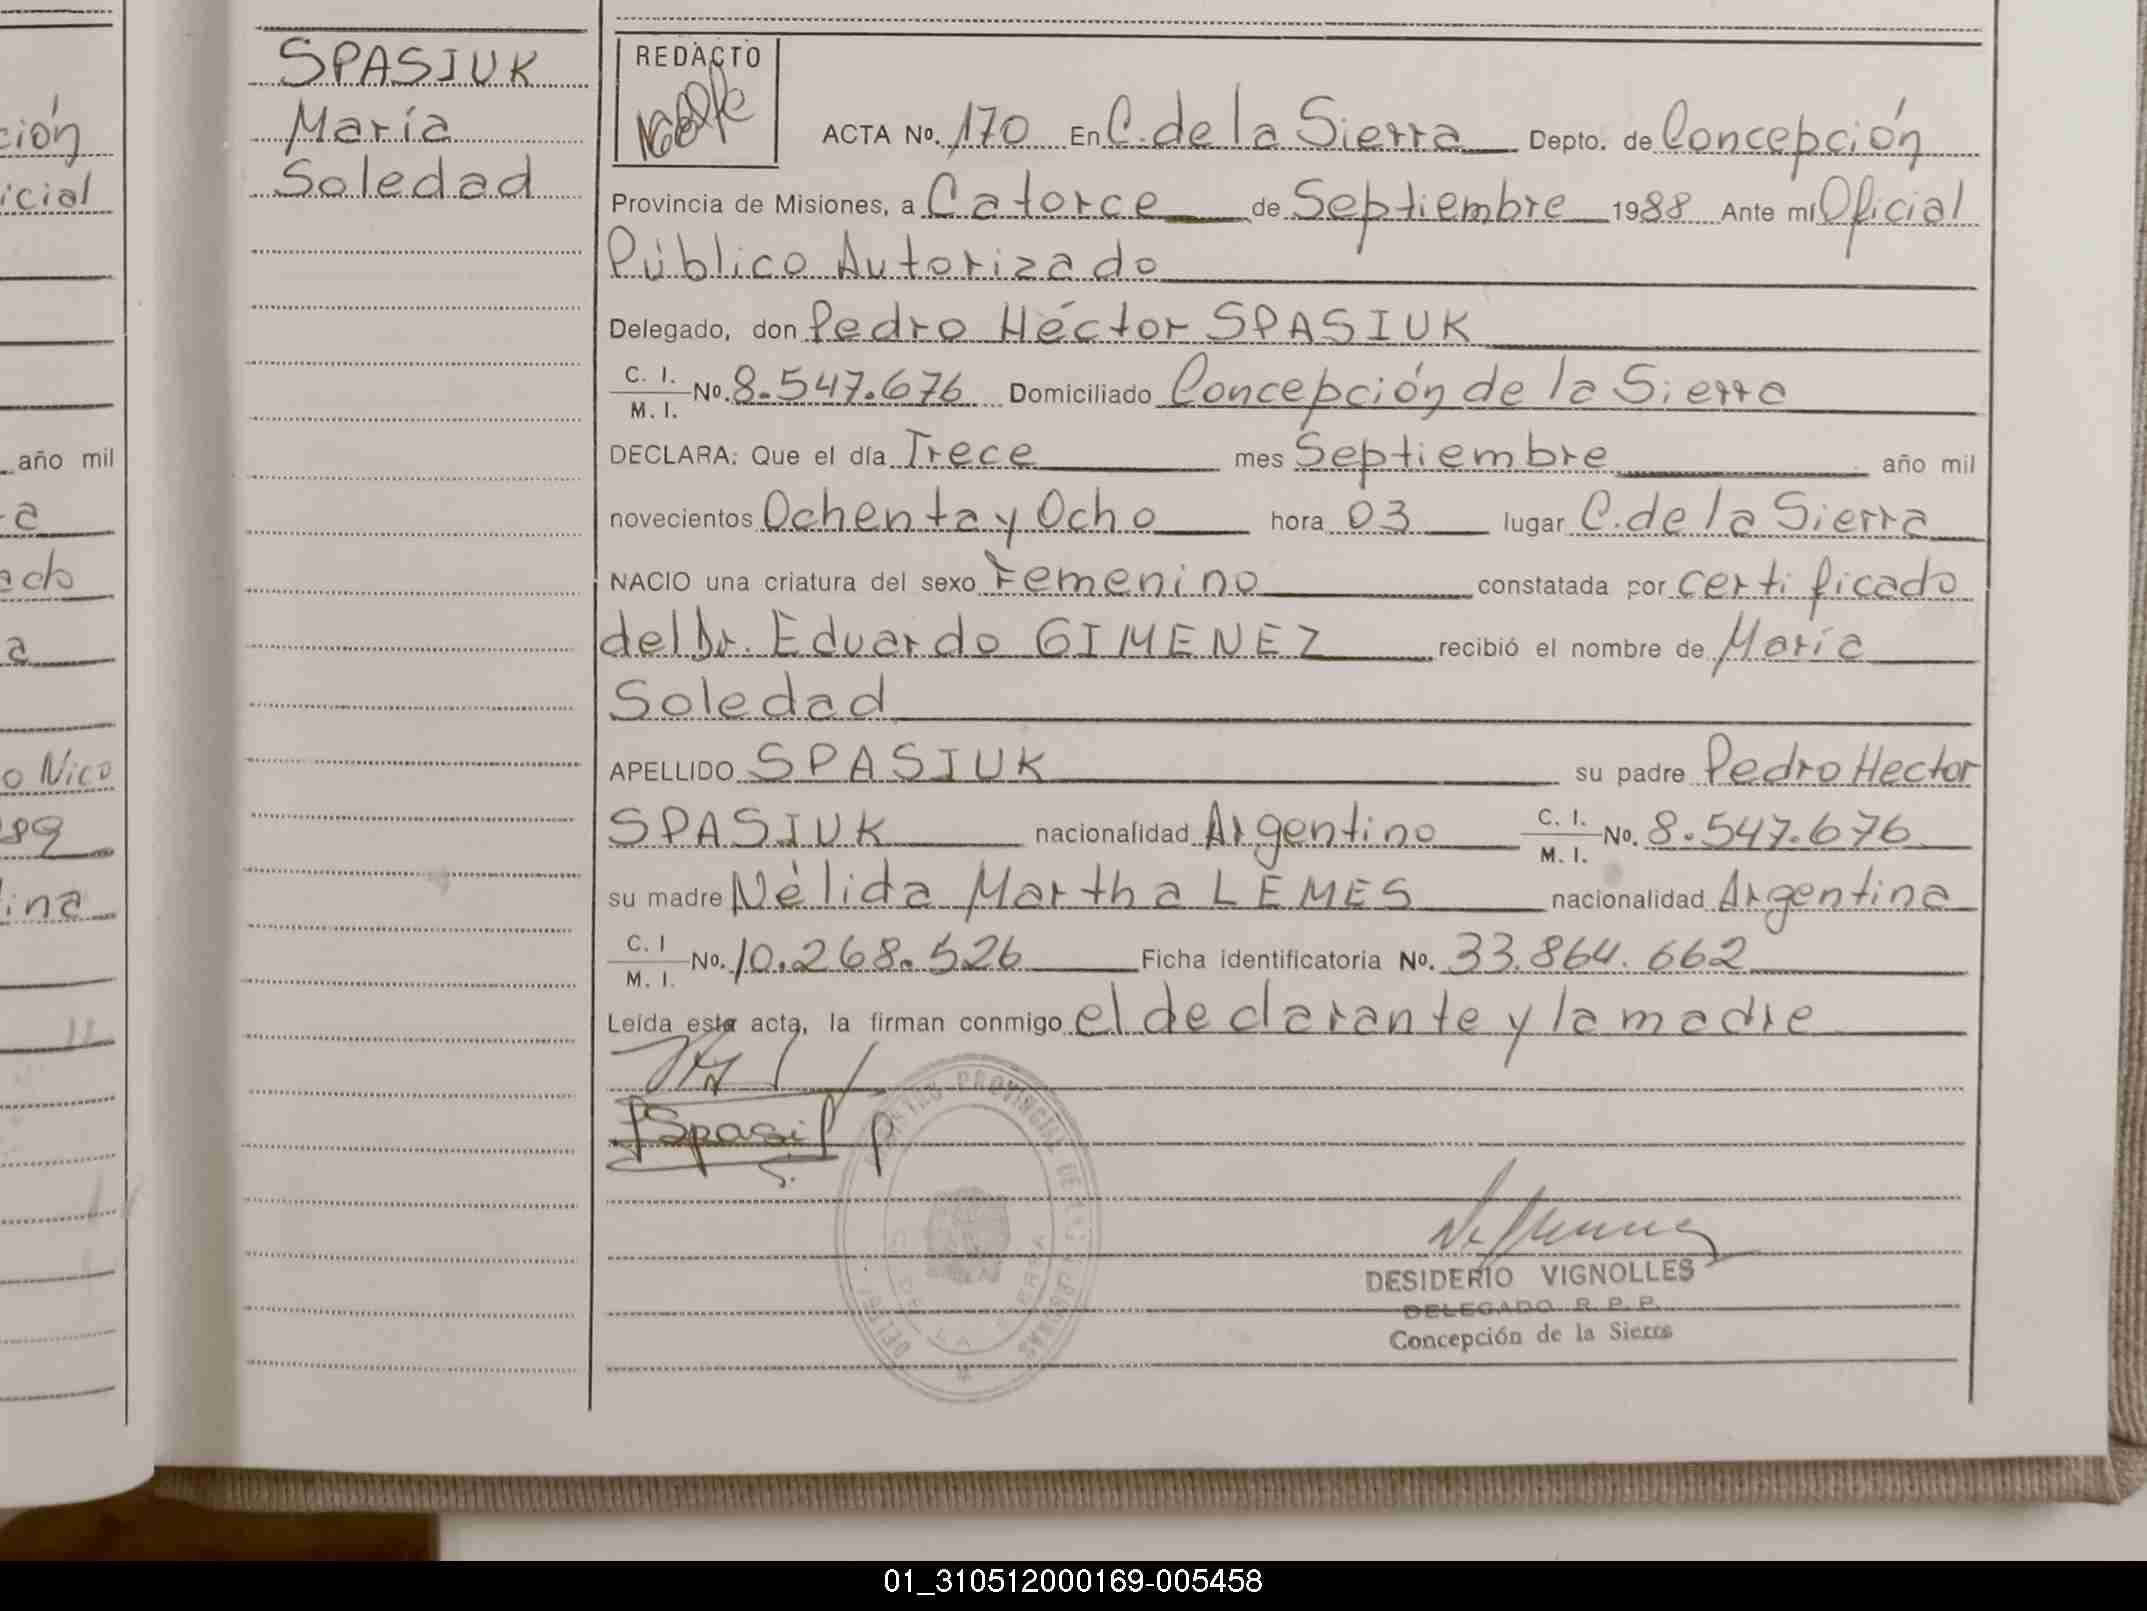 SPASIUK
María
Soledad
ción
icial
año mil
a
a
o Nico
89
ina
REDACTO
ACTA No. 170 En C. de la Sierra Depto. de Concepción
Provincia de Misiones, a Catorce de Septiembre 1988 Ante mí Oficial
Público Autorizado
Delegado, don Pedro Héctor SPASIUK
C. I.
M. I. No. 8.547.676 Domiciliado Concepción de la Sierra
DECLARA: Que el día Trece mes Septiembre año mil
novecientos Ochenta y Ocho hora 03 lugar C. de la Sierra
NACIO una criatura del sexo Femenino constatada por certificado
del Dr. Eduardo GIMENEZ recibió el nombre de María
Soledad
APELLIDO SPASIUK su padre Pedro Hector
SPASIUK nacionalidad Argentino C. I.
M. I. No. 8.547.676
su madre Nélida Martha LEMES nacionalidad Argentina
C. I
M. I. No. 10.268.526 Ficha identificatoria No. 33.864.662
Leída esta acta, la firman conmigo el declarante y la madre
DESIDERIO VIGNOLLES
DELEGADO R. P. P.
Concepción de la Sierra
01_310512000169-005458